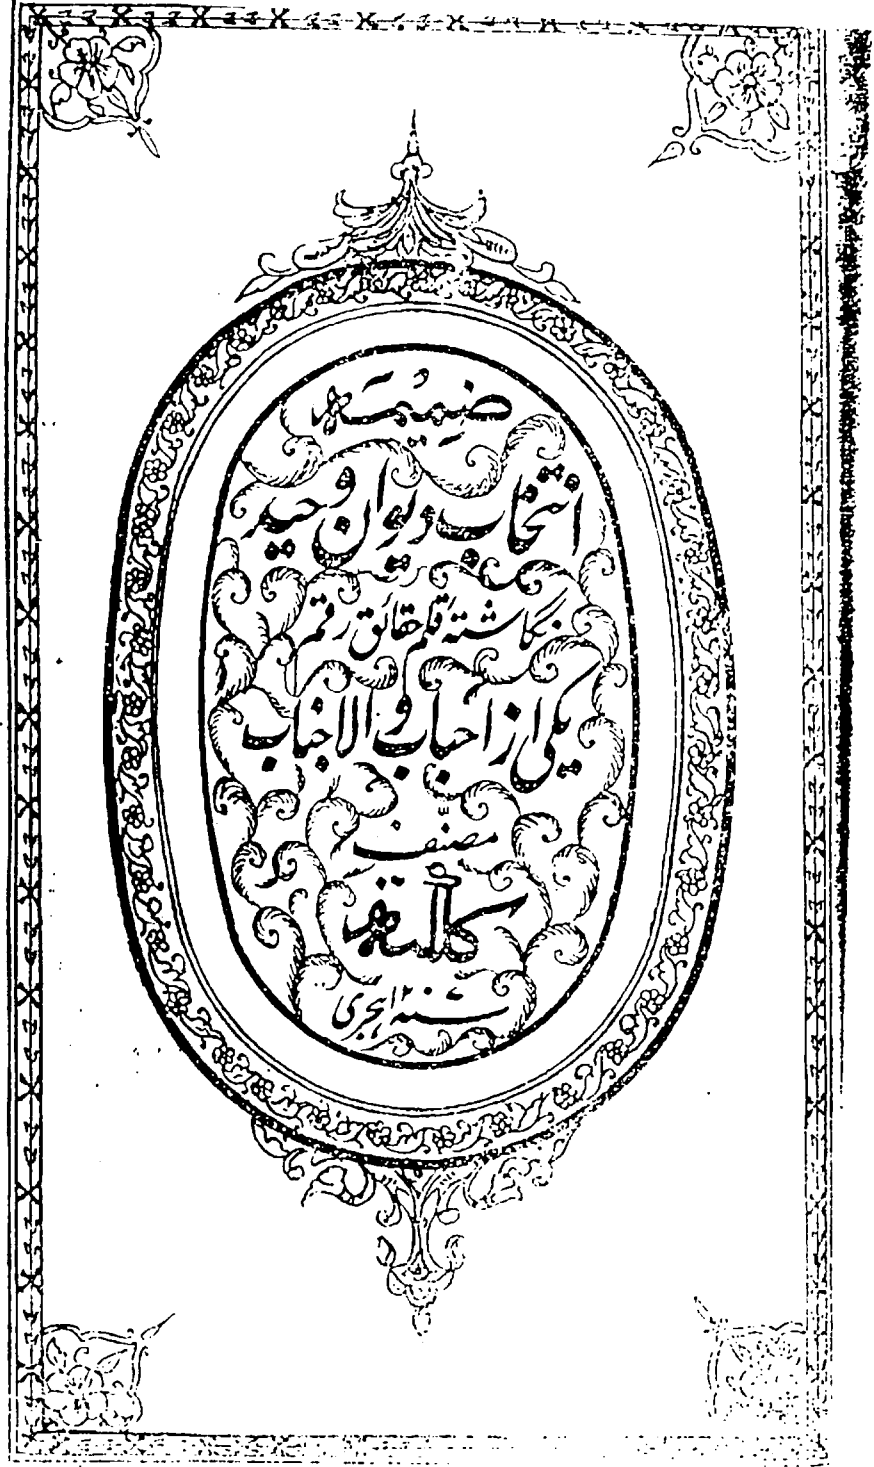 ضمیمہ
انتخاب دیوان وحید
نگاشتہ قلم حقائق رقم
یکی از احباب والاجناب
مصنف
کلکتہ
ہجری